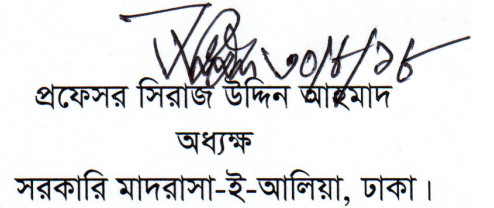 ৩০/৮/১৮
প্রফেসর সিরাজ উদ্দিন আহমাদ
অধ্যক্ষ
সরকারি মাদরাসা-ই-আলিয়া, ঢাকা।